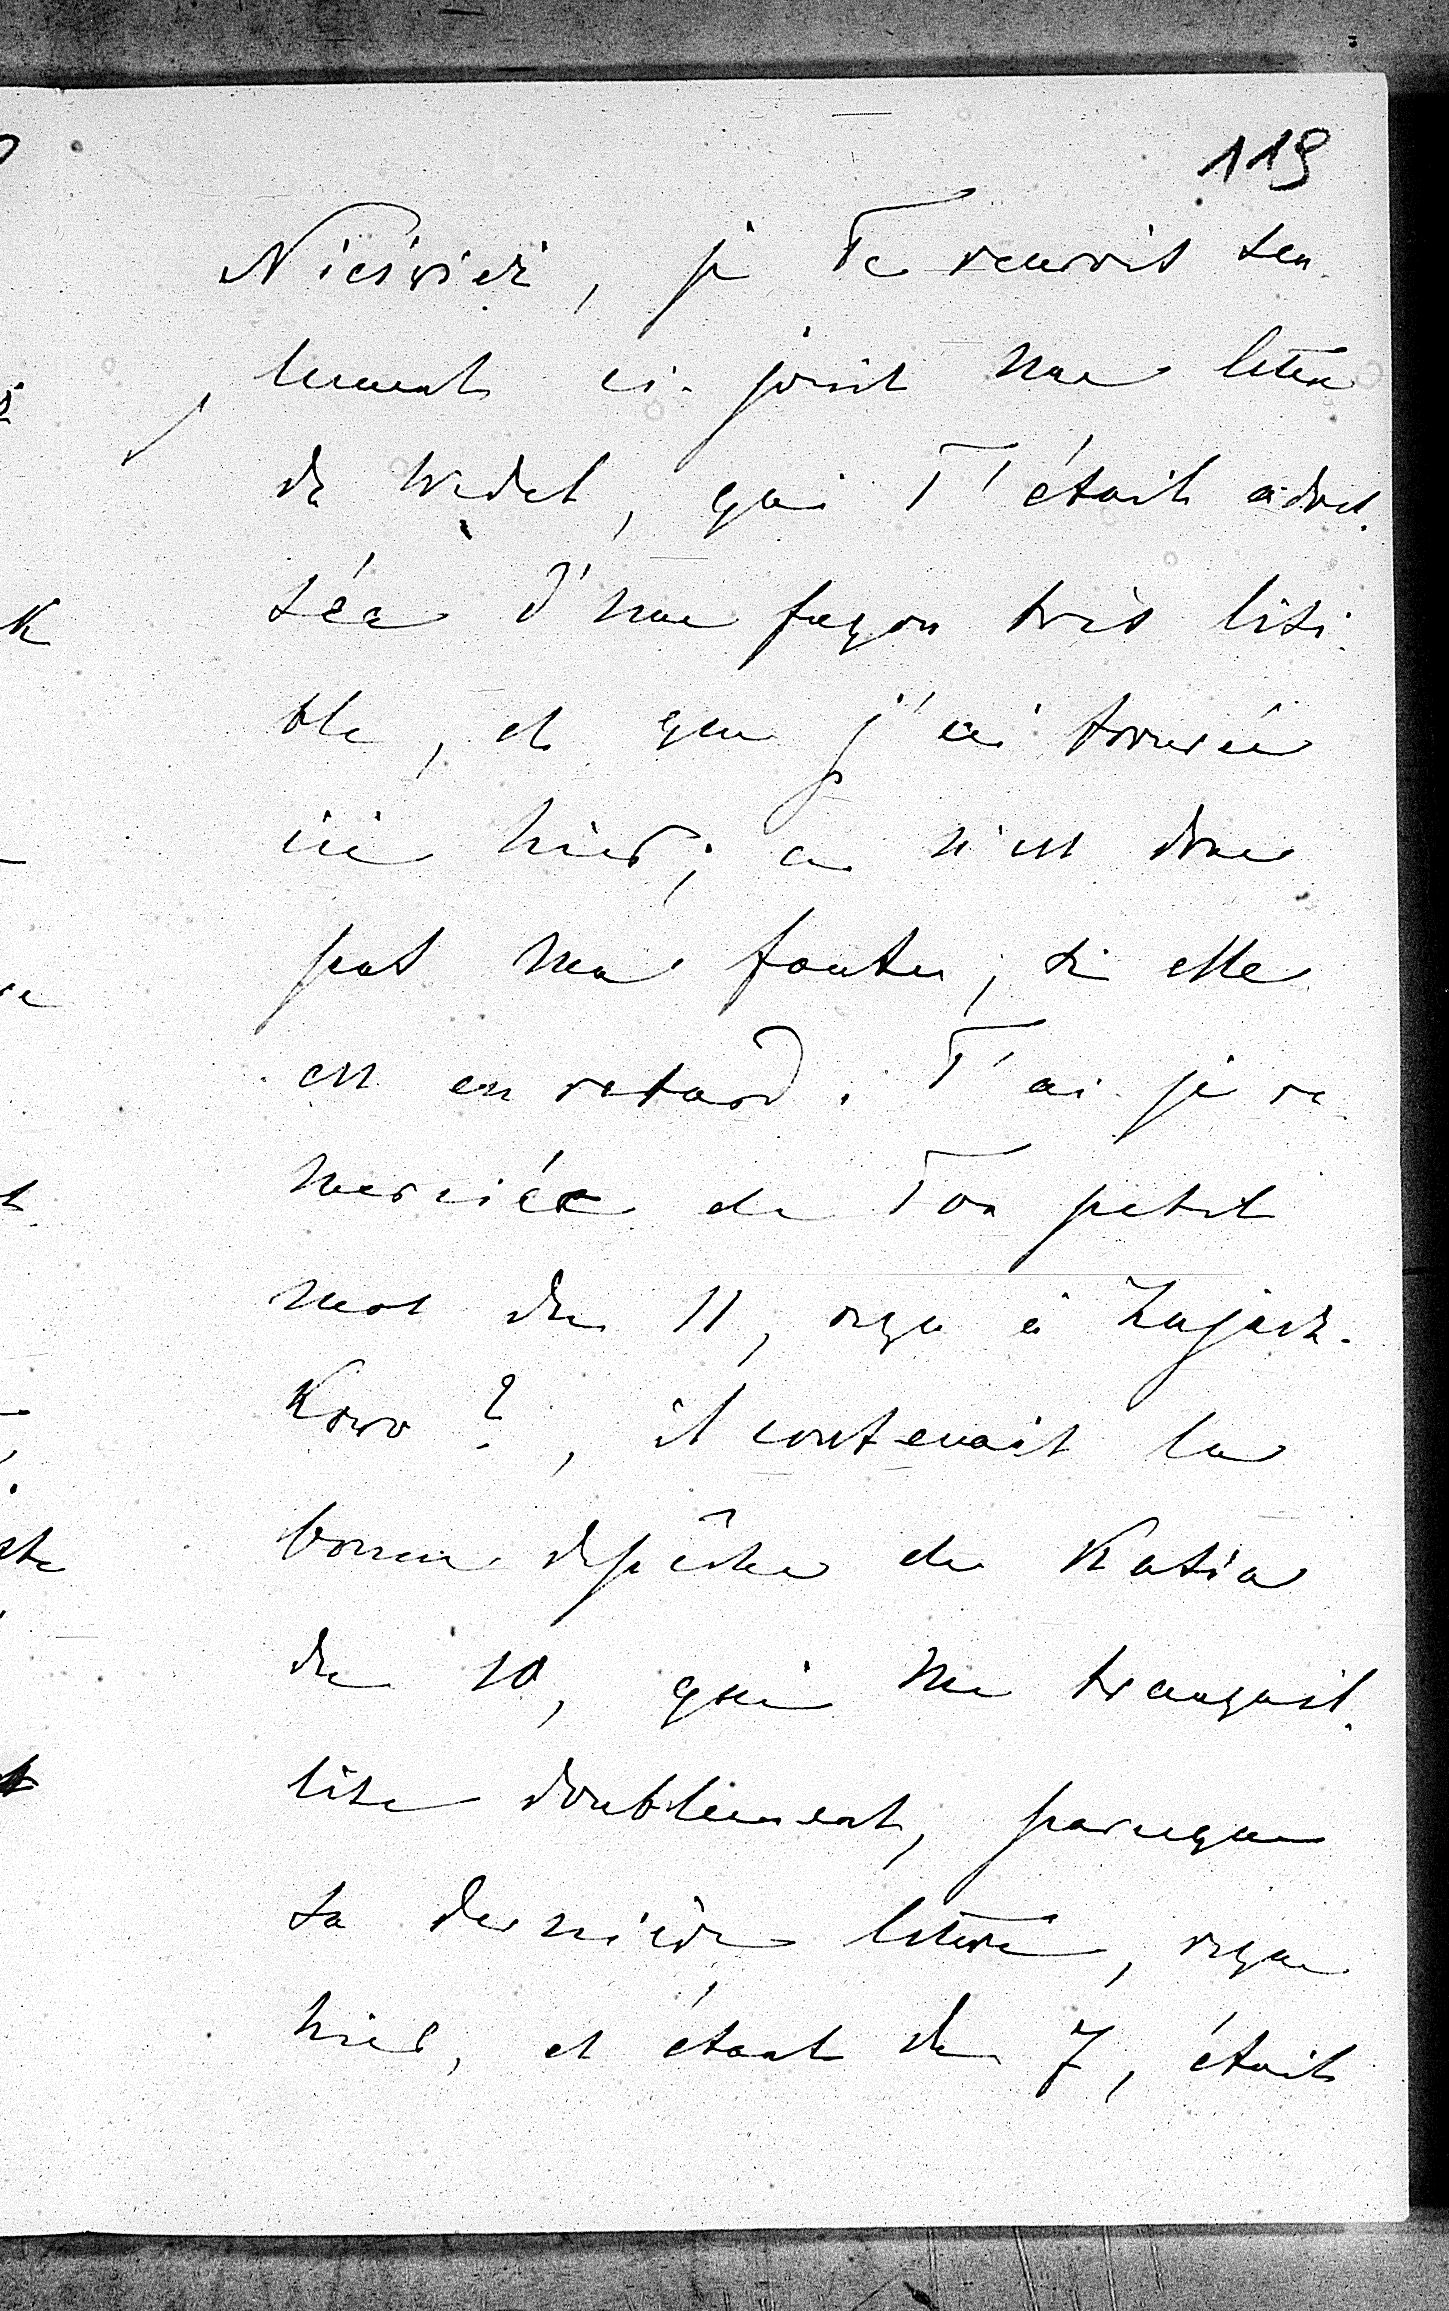 119
Nieśwież, je Te renvois seu-
lement ci-joint une lettre
de Wedel, qui T'était adres-
sée d'une façon très lisi-
ble, et que j'ai trouvée
ici hier; ce n'est donc
pas ma faute, si elle
est en retard. T'ai-je re-
merciée de Ton petit
mot du 11, reçu à Zającz-
kowo?, il contenait la
bonne dépêche de Katia
du 10, qui me tranquil-
lise doublement, parceque
sa dernière lettre, reçue
hier, et étant du 7, était